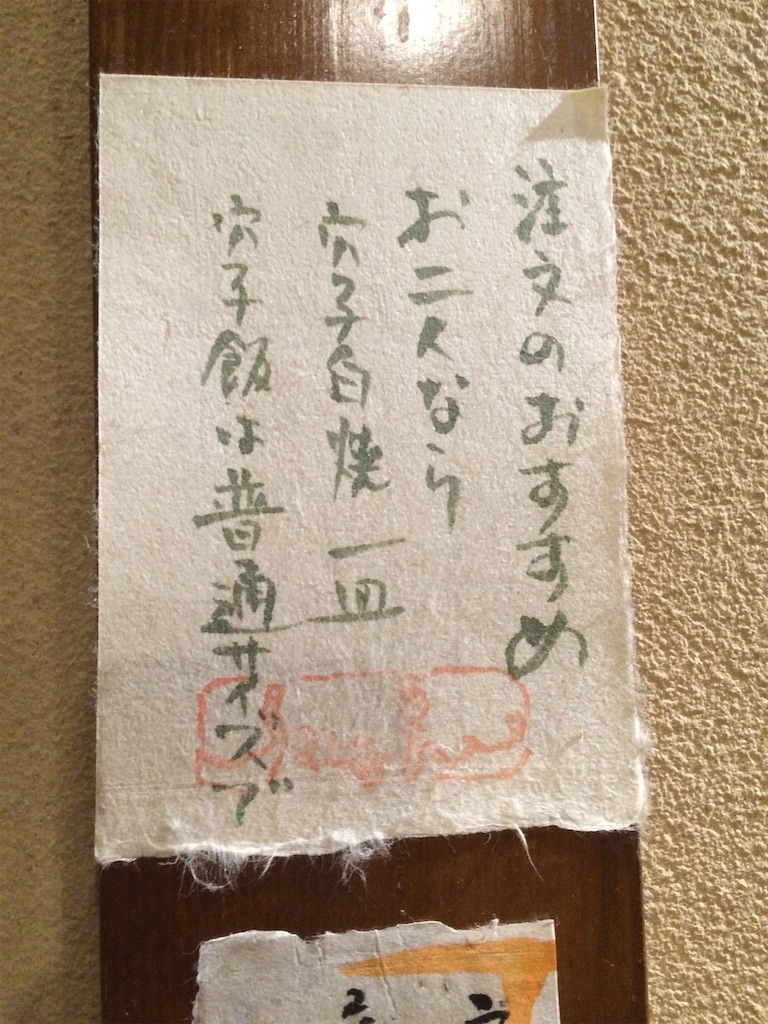 注文のおすすめ
お二人なら
穴子白焼 一皿
穴子飯は普通サイズで